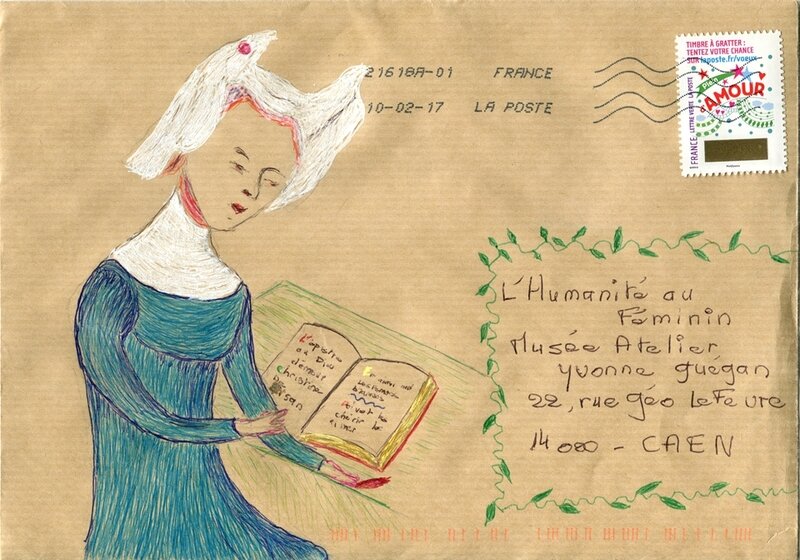 21618A-01 FRANCE
10-02-17 LA POSTE
TIMBRE À GRATTER :
TENTEZ VOTRE CHANCE
SUR laposte.fr/voeux
AMOUR
FRANCE LETTRE VERTE LA POSTE
L'Humanité au
Féminin
Musée Atelier
yvonne guégan
22, rue géo Lefevre
14000 - CAEN
L'epistre
au Dieu
d'amour
christine
Pisan